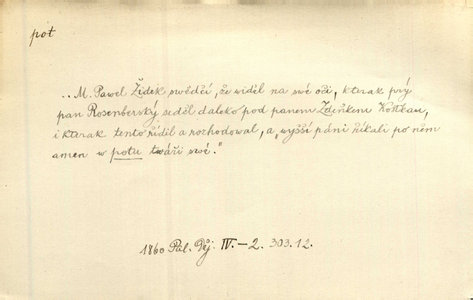 pot
„M. Pawel Žídek swědčí, že widěl na swé oči, kterak prý
pan Rosenberský seděl daleko pod panem Zdeňkem Kostkau,
i kterak tento řídil a rozhodowal, a „wyšší páni říkali po něm
amen w potu twáři swé.“
1860 Pal. Děj. IV.-2. 303.12.